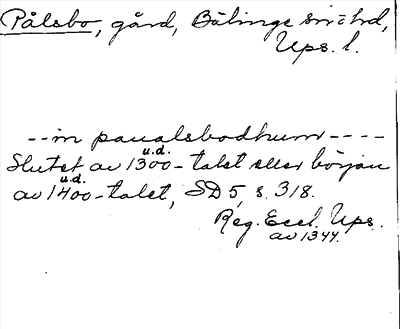 Pålsbo, gård, Bälinge sn o hd,
Ups. l.
-- in paualsbodhum ----
u.d.
Slutet av 1300-talet eller början
u.d.
av 1400-talet, SD 5, s. 318.
Reg. Eccl. Ups.
av 1344.